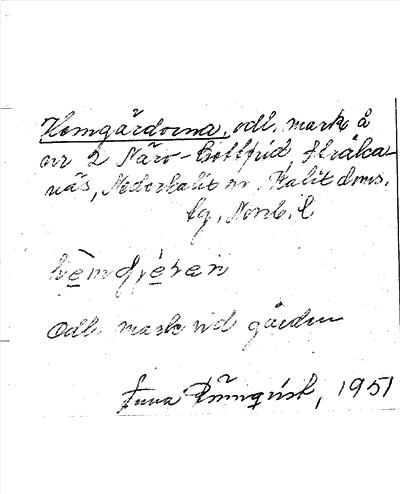 Hemgärdorna, odl. mark å
nr 2 Närv-Gottfrid, Stråka-
näs, Nederkalix nr, Kalix doms.
tg, Norrb. l
hèmgjéran
Odl. mark vid gården
Anna Rönnqvist, 1951